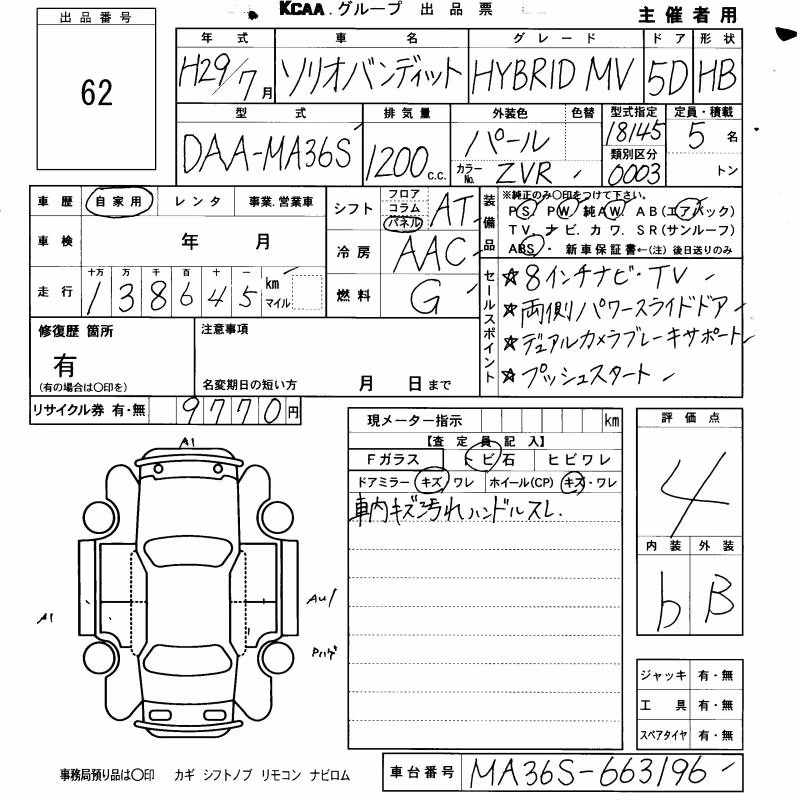 KCAA.グループ 出品票 主催者用
出品番号
62
年式 車名 グレード ドア 形状
H29/7月 ソリオバンディット HYBRID MV 5D HB
型式 排気量 外装色 色替 型式指定 定員・積載
DAA-MA36S 1200 c.c. パール 18145 5名
カラーNo. ZVR 類別区分 0003 トン
車歴 自家用 レンタ 事業.営業車
車検 年 月
走行 十万 万 千 百 十 一 km マイル
138645
シフト フロア コラム パネル AT
冷房 AAC
燃料 G
装備品 ※純正のみ○印をつけて下さい。
PS. PW. 純AW. AB(エアバック)
TV. ナビ. カワ. SR(サンルーフ)
ABS ・ 新車保証書←(注) 後日送りのみ
セールスポイント
☆8インチナビ・TV
☆両側パワースライドドア
☆デュアルカメラブレーキサポート
☆プッシュスタート
修復歴 箇所 注意事項
有
(有の場合は○印を) 名変期日の短い方 月 日まで
リサイクル券 有・無 9770円
現メーター指示 km
【査定員記入】
Fガラス トビ石 ヒビワレ
ドアミラー キズ ワレ ホイール(CP) キズ・ワレ
車内キズ汚れハンドルスレ.
評価点
4
内装 外装
b B
A1
A1
Au1
Pハゲ
ジャッキ 有・無
工具 有・無
スペアタイヤ 有・無
事務局預り品は○印 カギ シフトノブ リモコン ナビロム
車台番号 MA36S-663196